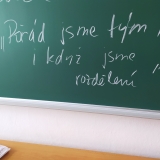 „Pořád jsme tým
i když jsme
rozdělení